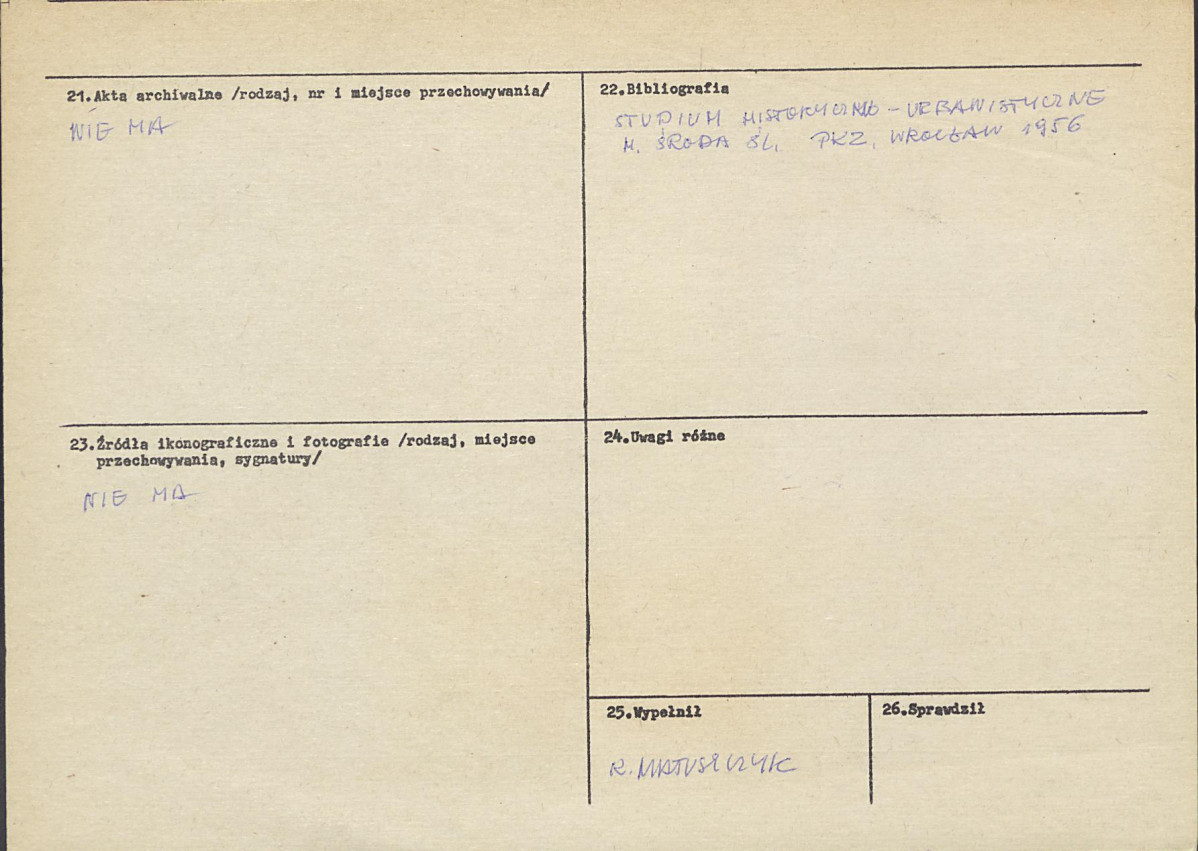 21.Akta archiwalne /rodzaj, nr i miejsce przechowywania/
NIE MA
22.Bibliografia
STUDIUM HISTORYCZNO - URBANISTYCZNE
M. ŚRODA ŚL. PKZ, WROCŁAW 1956
23.Źródła ikonograficzne i fotografie /rodzaj, miejsce
przechowywania, sygnatury/
NIE MA
24.Uwagi różne
25.Wypełnił
R. MATUSZCZYK
26.Sprawdził